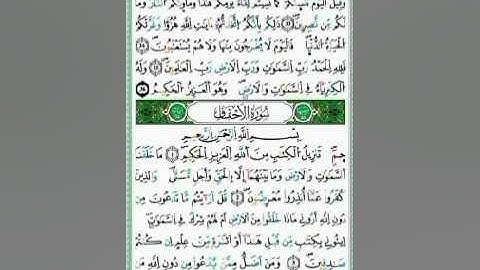 وَقِيلَ الْيَوْمَ نَنسَىٰكُمْ كَمَا نَسِيتُمْ لِقَآءَ يَوْمِكُمْ هَٰذَا وَمَأْوَىٰكُمُ النَّارُ وَمَا
لَكُم مِّن نَّٰصِرِينَ ذَٰلِكُم بِأَنَّكُمُ اتَّخَذْتُمْ ءَايَٰتِ اللَّهِ هُزُوًا وَغَرَّتْكُمُ
الْحَيَوٰةُ الدُّنْيَا فَالْيَوْمَ لَا يُخْرَجُونَ مِنْهَا وَلَا هُمْ يُسْتَعْتَبُونَ
فَلِلَّهِ الْحَمْدُ رَبِّ السَّمَٰوَٰتِ وَرَبِّ الْأَرْضِ رَبِّ الْعَٰلَمِينَ وَلَهُ
الْكِبْرِيَآءُ فِي السَّمَٰوَٰتِ وَالْأَرْضِ وَهُوَ الْعَزِيزُ الْحَكِيمُ
سُورَةُ الْأَحْقَافِ
بِسْمِ اللَّهِ الرَّحْمَٰنِ الرَّحِيمِ
حمٓ تَنزِيلُ الْكِتَٰبِ مِنَ اللَّهِ الْعَزِيزِ الْحَكِيمِ مَا خَلَقْنَا
السَّمَٰوَٰتِ وَالْأَرْضَ وَمَا بَيْنَهُمَآ إِلَّا بِالْحَقِّ وَأَجَلٍ مُّسَمًّى وَالَّذِينَ
كَفَرُوا عَمَّآ أُنذِرُوا مُعْرِضُونَ قُلْ أَرَءَيْتُم مَّا تَدْعُونَ مِن
دُونِ اللَّهِ أَرُونِي مَاذَا خَلَقُوا مِنَ الْأَرْضِ أَمْ لَهُمْ شِرْكٌ فِي السَّمَٰوَٰتِ
ائْتُونِي بِكِتَٰبٍ مِّن قَبْلِ هَٰذَآ أَوْ أَثَٰرَةٍ مِّنْ عِلْمٍ إِن كُنتُمْ
صَٰدِقِينَ وَمَنْ أَضَلُّ مِمَّن يَدْعُوا مِن دُونِ اللَّهِ مَن